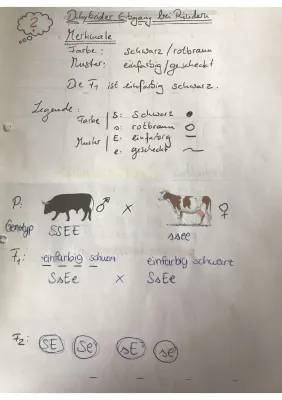 2
Dihybrider Erbgang bei Rindern
Merkmale
Farbe: schwarz/rotbraun
Muster: einfarbig/gescheckt
Die F1 ist einfarbig schwarz.
Legende:
Farbe
S: schwarz
s: rotbraun
Muster
E: einfarbig
e: gescheckt
P: ♂ x ♀
Genotyp SSEE ssee
F1: einfarbig schwarz einfarbig schwarz
SsEe x SsEe
F2: SE Se sE se